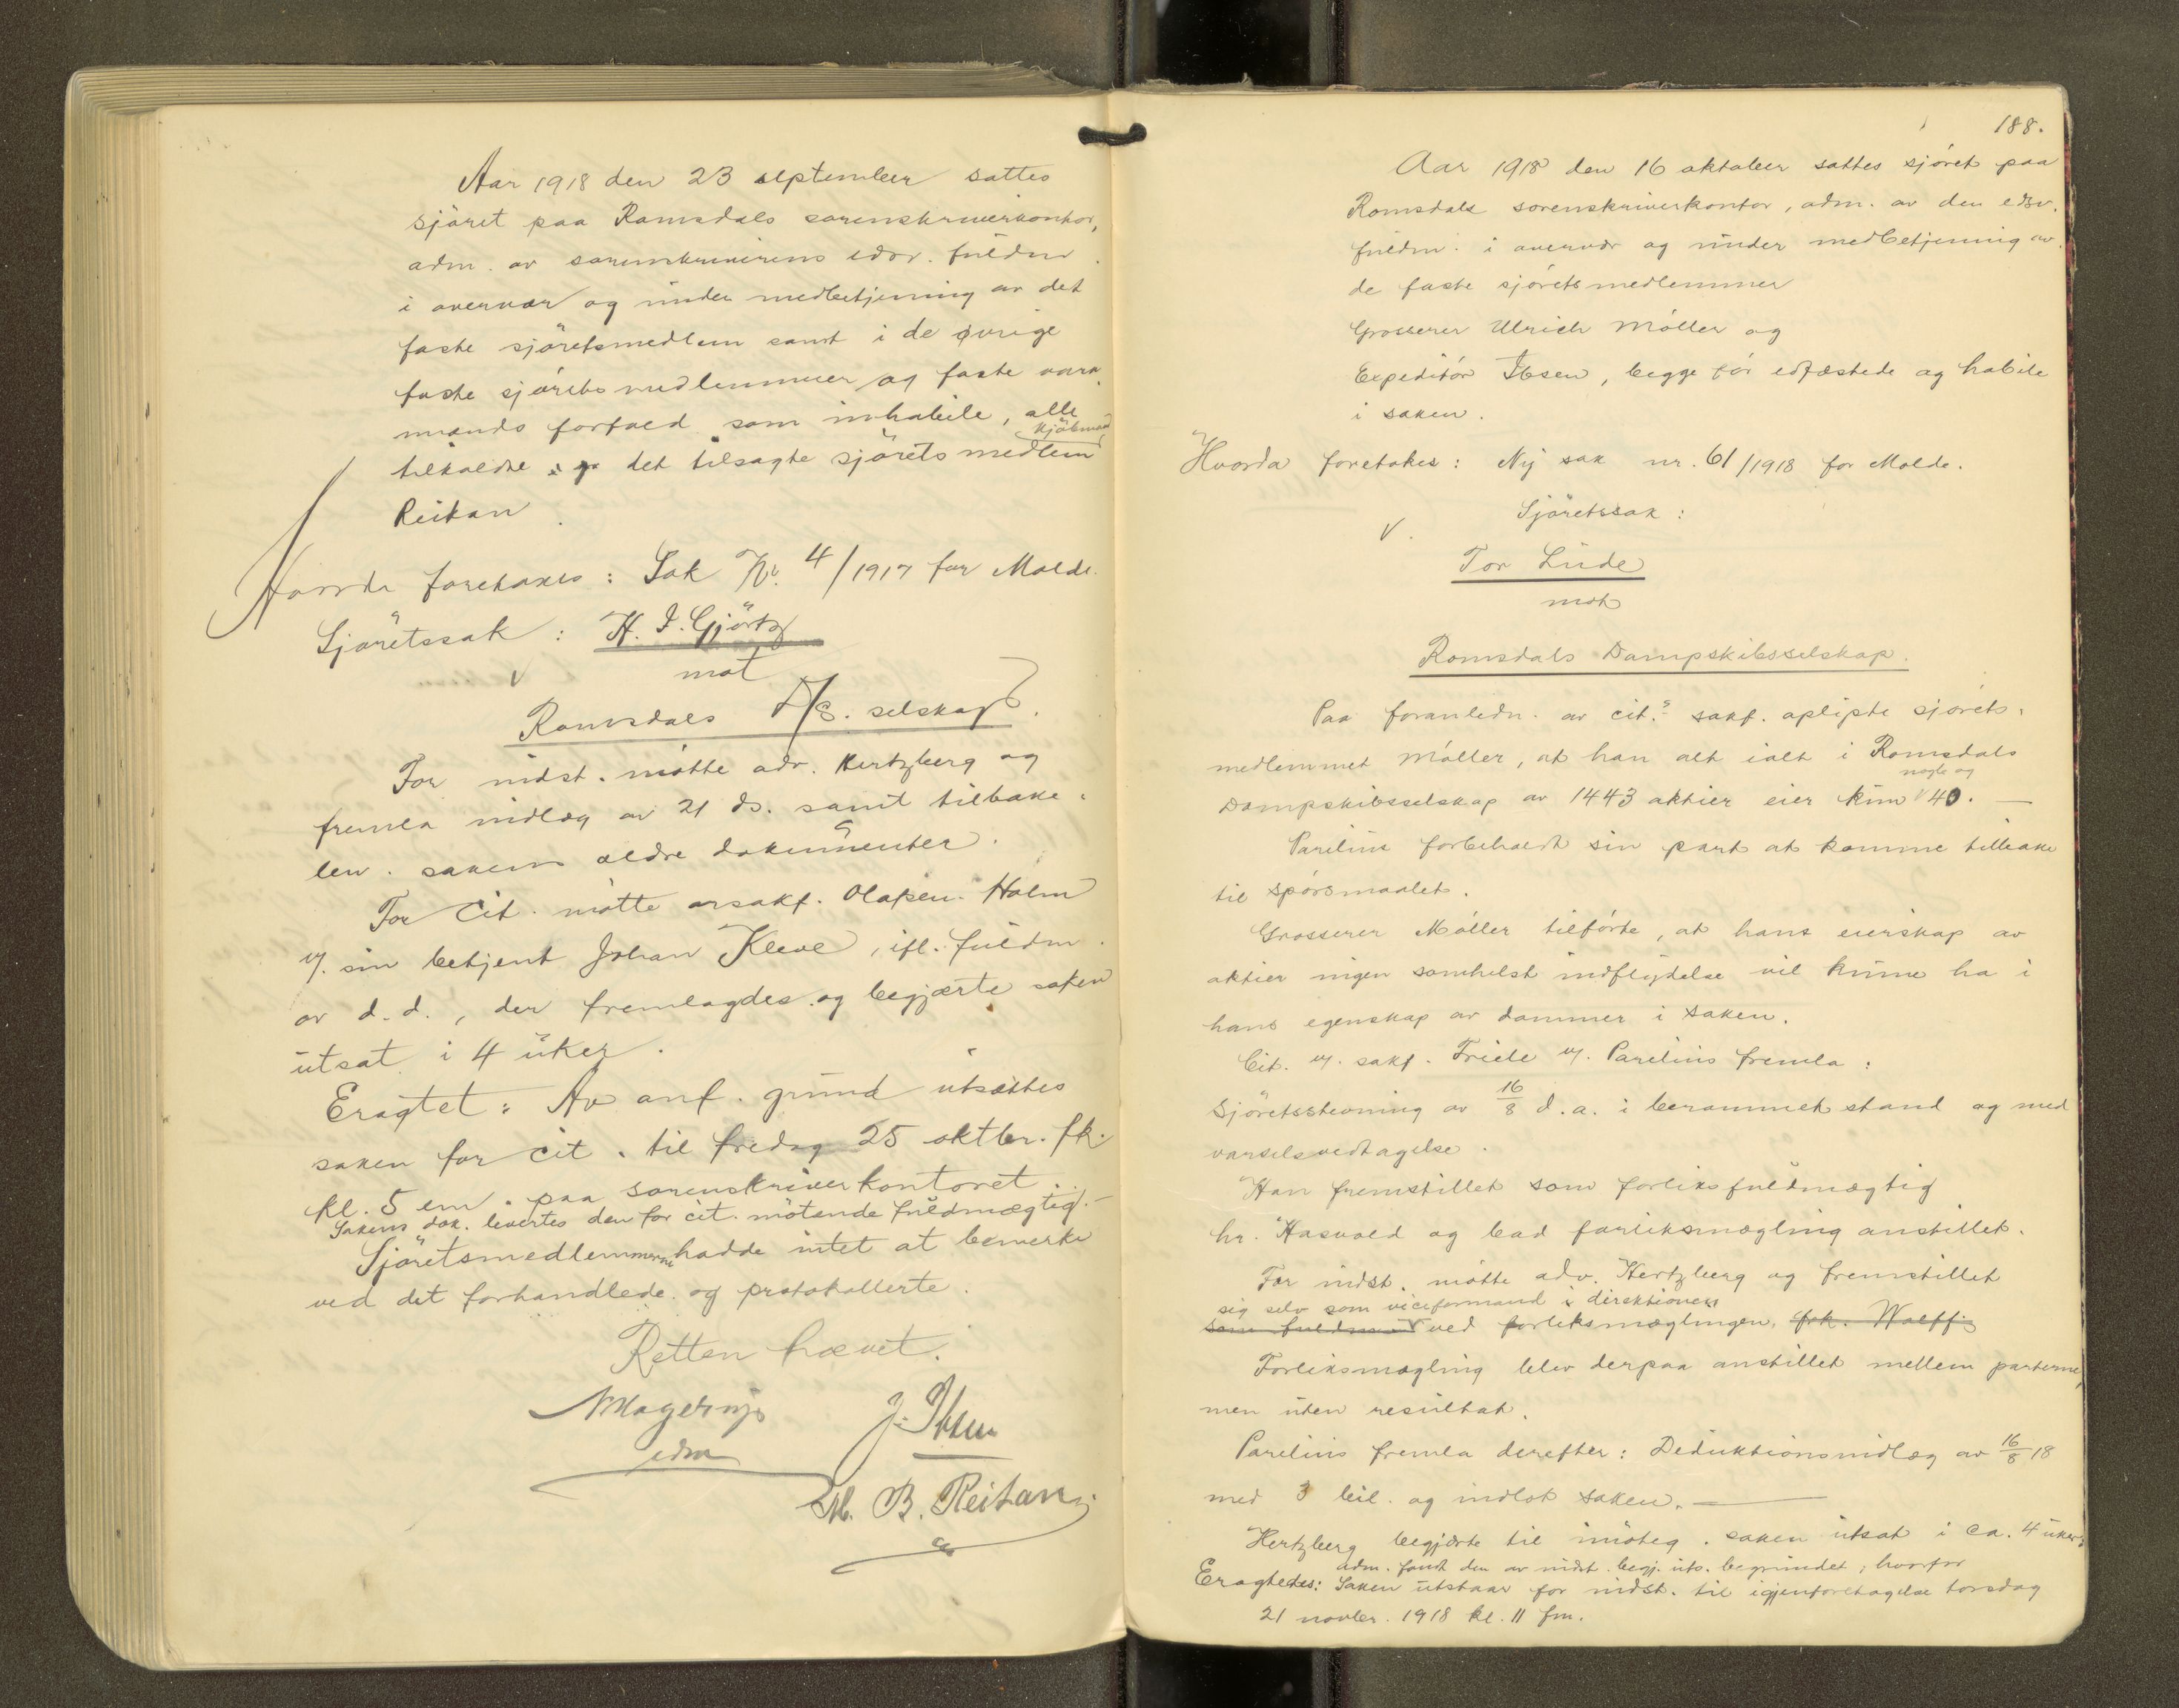 Aar 1918 den 23 september sattes
sjøret paa Romsdals sorenskriverkontor,
adm. av sorenskriverens edsv. fuldm.
i overvær og under medbetjening av det
faste sjøretsmedlem samt i de øvrige
faste sjøretsmedlemmer og faste vara-
mænds forfald som inhabile, alle
tilkaldte det tilsagte sjørets medlem kjøbmand
Reitan.
Hvorda foretokes: Sak Nr. 4/1917 for Molde.
Sjøretssak: H. I. Gjørtz
mot
Romsdals D/S. selskap.
For indst. møtte adv. Hertzberg og
fremla indlæg av 21 ds. samt tilbake-
lev. sakens ældre dokumenter.
For Cit. møtte orsakf. Olafsen-Holm
v/. sin betjent Johan Kleve, ifl. fuldm.
av d.d., der fremlagdes og begjærte saken
utsat i 4 uker.
Eragtet: Av anf. grund utsættes
saken for cit. til fredag 25 oktbr. fk.
kl. 5 em. paa sorenskriverkontoret.
Sakens dok. levertes den for cit. møtende fuldmægtig.-
Sjøretsmedlemmerne hadde intet at bemerke
ved det forhandlede og protokollerte.
Retten hævet.
J. Ibsen
edsv
M. B. Reitan
188.
Aar 1918 den 16 oktober sattes sjøret paa
Romsdals sorenskriverkontor, adm. av den edsv.
fuldm. i overvær og under medbetjening av
de faste sjøretsmedlemmer
Grosserer Ulrich Møller og
Expeditør Ibsen, begge før edfæstede og habile
i saken.
Hvorda foretokes: Ny sak nr. 61/1918 for Molde.
Sjøretssak:
V.
Tor Lude
mot
Romsdals Dampskibsselskap.
Paa foranledn. av cit.s sakf. oplyste sjørets-
medlemmet Møller, at han alt ialt i Romsdals
Dampskibsselskap av 1443 aktier eier kun nogle og 40. —
Parelius forbeholdt sin part at komme tilbake
til spørsmaalet.
Grosserer Møller tilførte, at hans eierskap av
aktier ingen somhelst indflydelse vil kunne ha i
hans egenskap av dommer i saken.
Cit. v/. sakf. Friele v/. Parelius fremla:
Sjøretsstevning av 16/8 d.a. i berammet stand og med
varselsvedtagelse.
Han fremstillet som forliksfuldmægtig
hr. Hasvold og bad forliksmægling anstillet.
For indst. møtte adv. Hertzberg og fremstillet
sig selv som viceformand i direktionen
som fuldm. ved forliksmæglingen, frk. Wolff.
Forliksmægling blev derpaa anstillet mellem parterne,
men uten resultat.
Parelius fremla derefter: Deduktionsindlæg av 16/8 18
med 3 bil. og indlot saken. —
Hertzberg begjærte til imøteg. saken utsat i ca. 4 uker.
adm. fandt den av indst. begj. uts. begrundet, hvorfor
Eragtedes: Saken utstaar for indst. til igjenforetagelse torsdag
21 novbr. 1918 kl. 11 fm.